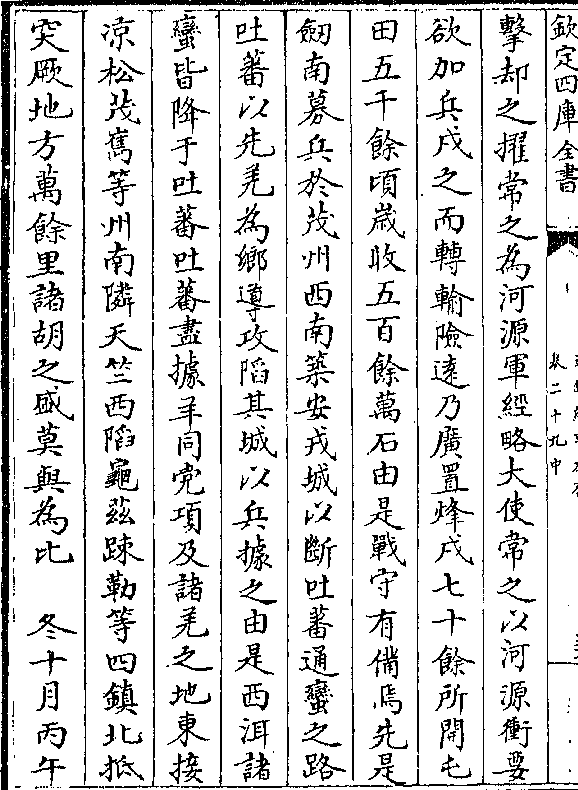 欽定四庫全書
卷二十九中
擊却之擢常之為河源軍經略大使常之以河源衝要
欲加兵戍之而轉輸險逺乃廣置烽戍七十餘所開屯
田五千餘頃嵗收五百餘萬石由是戰守有備焉先是
劒南募兵於茂州西南築安戎城以斷吐蕃通蠻之路
吐蕃以先羌為鄉導攻陷其城以兵據之由是西洱諸
蠻皆降于吐蕃吐蕃盡據羊同党項及諸羌之地東接
涼松茂嶲等州南隣天竺西陷龜兹踈勒等四鎮北抵
突厥地方萬餘里諸胡之盛莫與為比　冬十月丙午